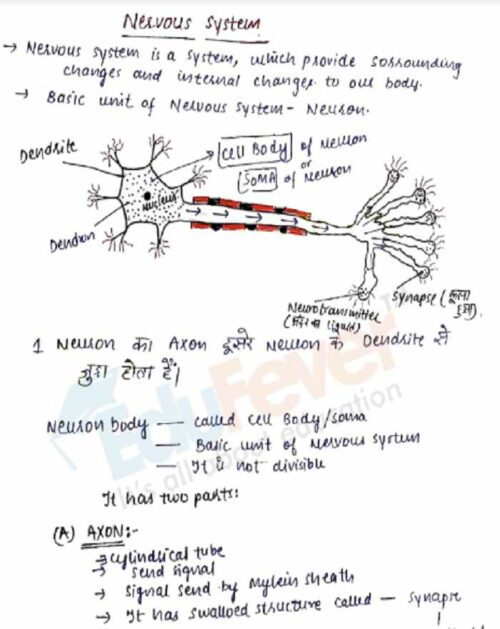 Nervous System
→ Nervous system is a system, which provide sorrounding
changes and internal changes to our body.
→ Basic unit of Nervous System - Neuron.
Dendrite
Cell Body of neuron
or
SOMA of neuron
Nucleus
Dendron
Neurotransmitter
liquid)
Synapse (फूला
हुआ)
1 Neuron का Axon दूसरे Neuron के Dendrite से
जुड़ा होता हैं।
EduFever
It's all about education
Neuron body — called cell Body/soma
— Basic unit of Nervous system
— It is not divisible
It has two parts:
(A) AXON:-
→ cylindrical tube
→ send signal
→ signal send by Mylein sheath
→ It has swalloed structure called — synapse